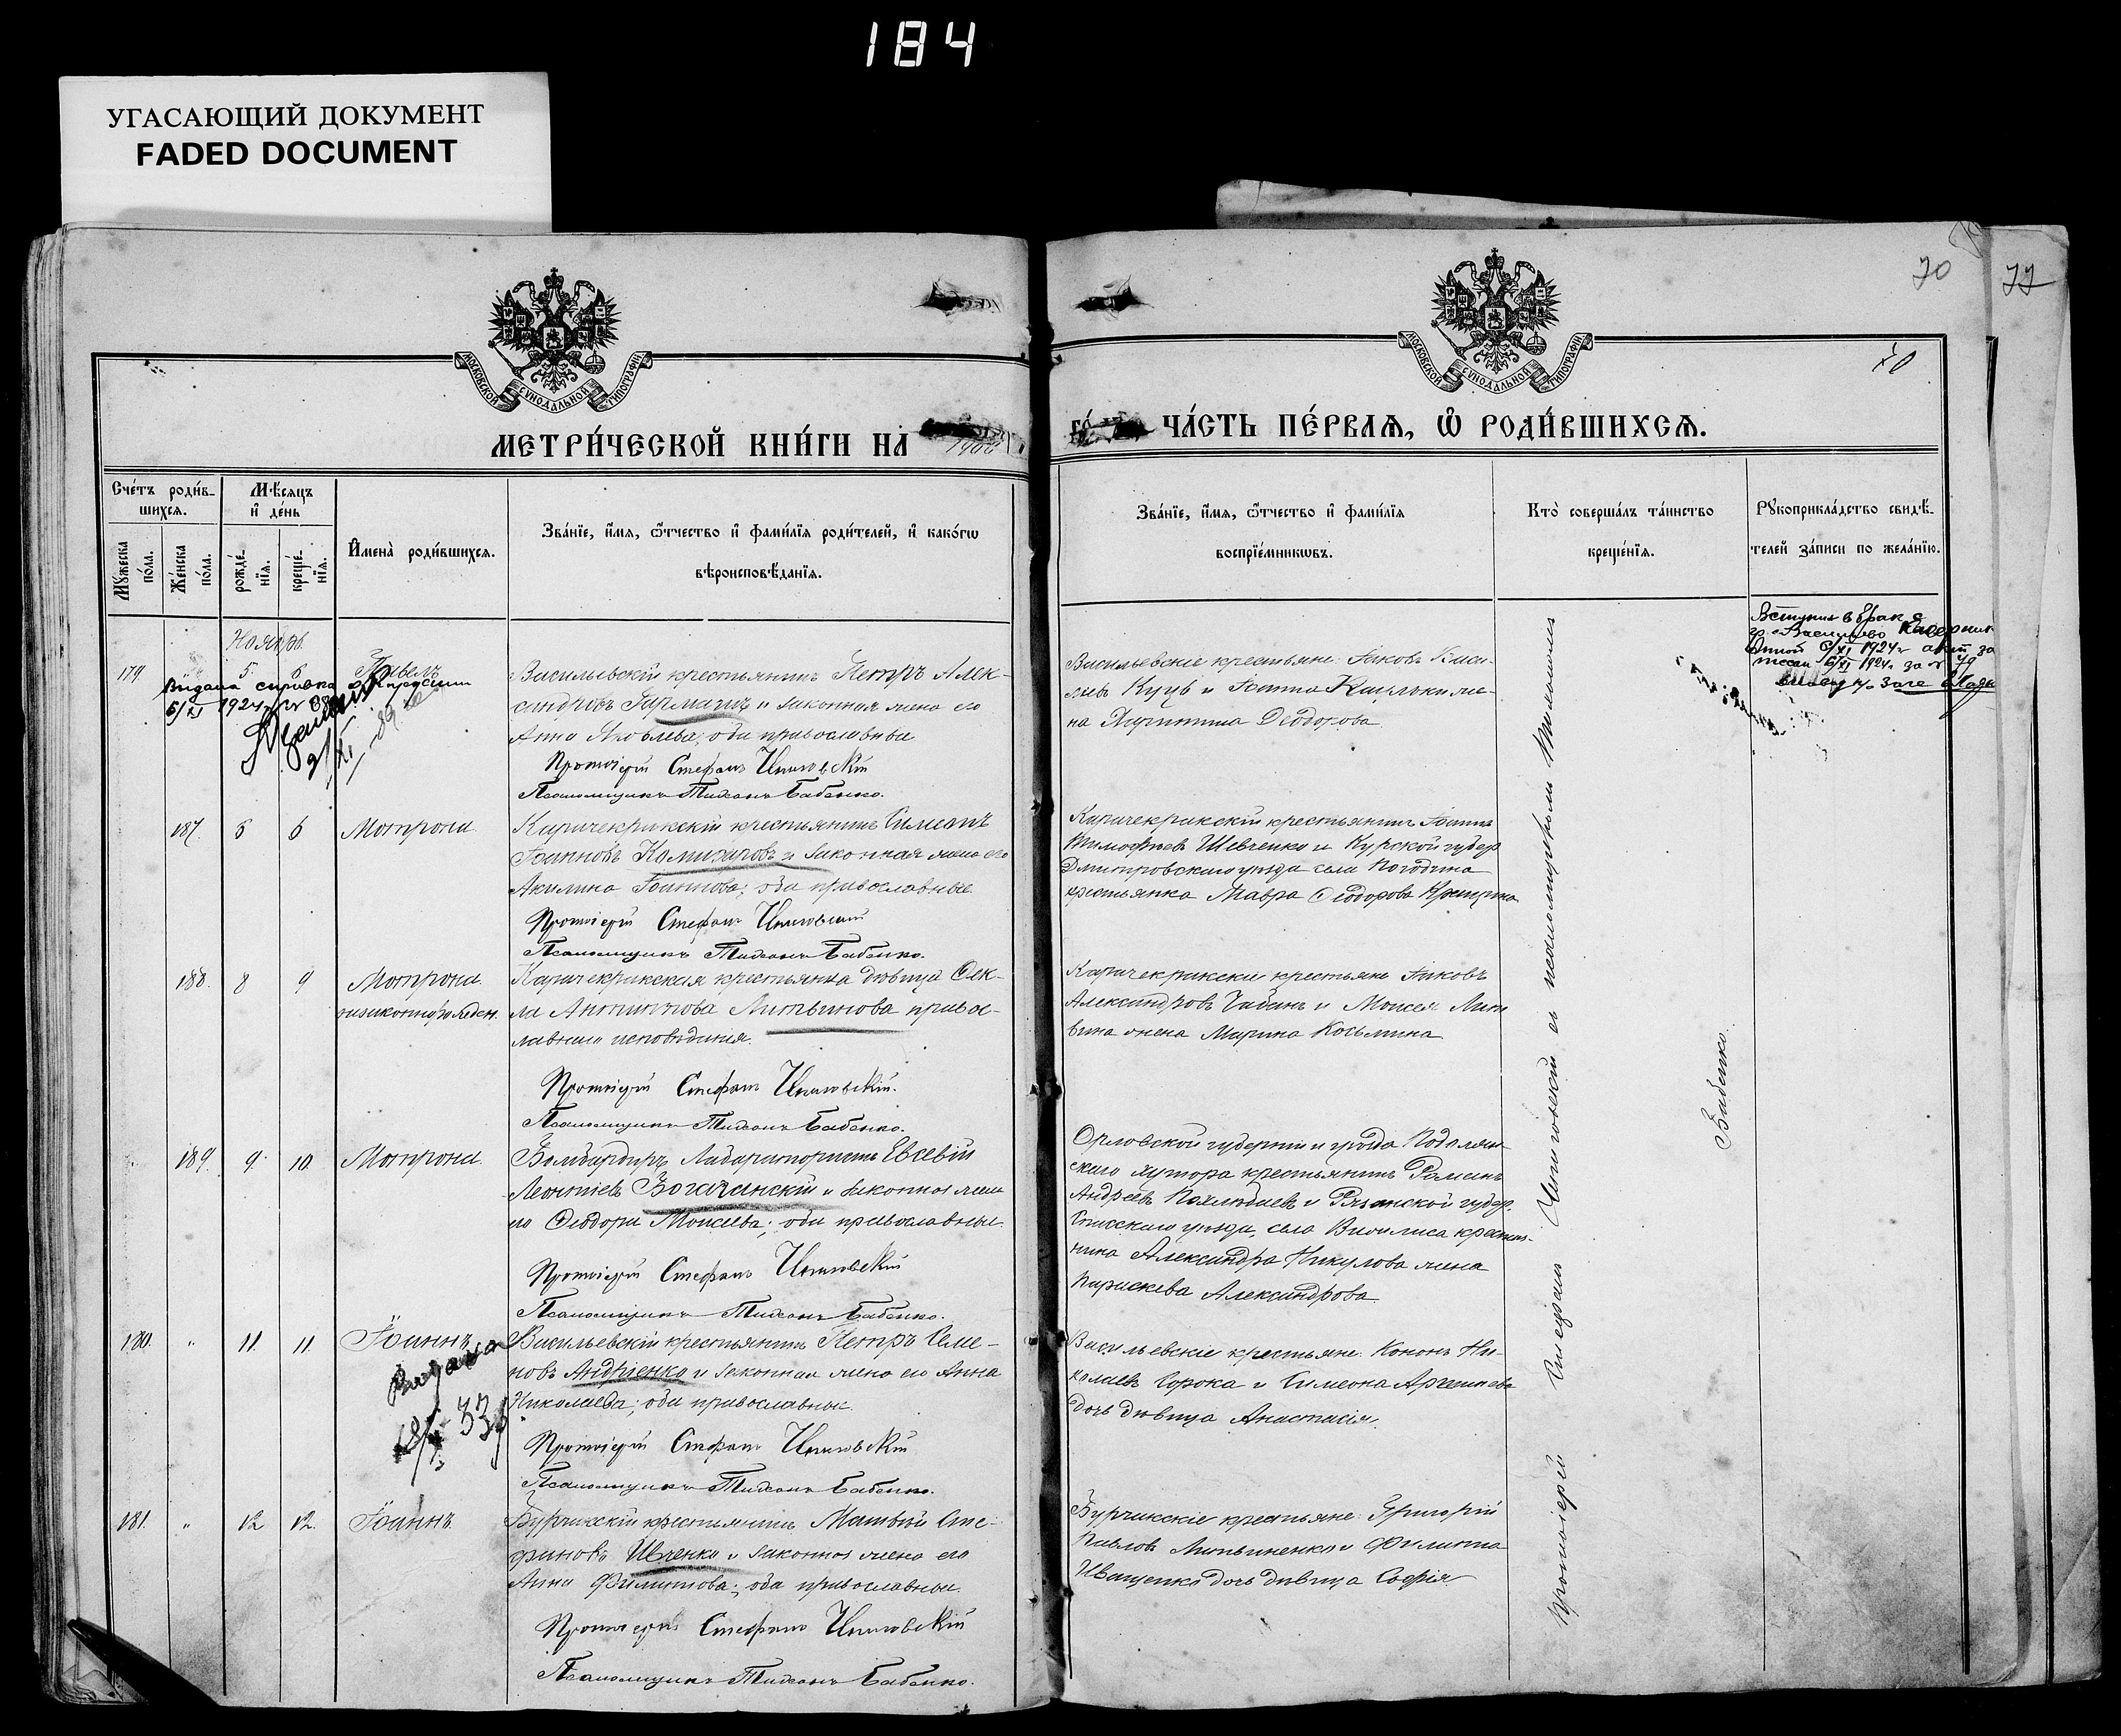 184
УГАСАЮЩИЙ ДОКУМЕНТ
FADED DOCUMENT
70
77
70
МОСКОВСКОЙ СѴНОДАЛЬНОЙ ТИПОГРАФІИ
МОСКОВСКОЙ СѴНОДАЛЬНОЙ ТИПОГРАФІИ
МЕТРИ́ЧЕСКОЙ КНИ́ГИ НА
ЧА́СТЬ ПЕ́РВАѦ, Ѡ РОДИ́ВШИХСѦ.
Сче́тъ роди́в-
шихсѧ.
Мꙋжеска по́ла.
Же́нска по́ла.
Мѣ́сѧцъ
и де́нь
рожде́-
нїѧ.
креще́-
нїѧ.
Имена̀ роди́вшихсѧ.
Зва́нїе, и́мѧ, ѻ́тчество и фами́лїѧ роди́телей, и како́гѡ
вѣроисповѣ́данїѧ.
Зва́нїе, и́мѧ, ѻ́тчество и фами́лїѧ
воспрїе́мникѡвъ.
Кто̀ соверша́лъ та́инство
креще́нїѧ.
Рꙋкоприкла́дство свидѣ́-
телей за́писи по жела́нїю.
Ноябрь.
179. 5. 6 Павелъ
Васильевскій крестьянинъ Петръ Алек-
сандровъ Гармашъ и законная жена его
Анна Яковлева; оба православные
Протоіерей Стефанъ
Псаломщикъ Тихонъ Бабенко.
Видана справка
6/XI 1924
Васильевскіе крестьяне: Іаковъ Васи-
льевъ Куцъ и Іоанна
на Харитина Ѳеодорова
Вступил в брак с
6/XI 1924 г акт за
187. 5 6 Матрона
Карачекракскій крестьянинъ Симеонъ
Іоанновъ Комисаровъ и законная жена его
Акилина Іоаннова; оба православные
Протоіерей Стефанъ
Псаломщикъ Тихонъ Бабенко.
Карачекракскій крестьянинъ Іоаннъ
Тимофѣевъ Шевченко и Курской губер.
Дмитровскаго уѣзда села Погодина
крестьянка Мавра Ѳеодорова
188. 8 9 Матрона
незаконнорожден.
Карачекракская крестьянка дѣвица Ѳек-
ла Антипова Литвинова правос-
лавнаго исповѣданія.
Протоіерей Стефанъ
Псаломщикъ Тихонъ Бабенко.
Карачекракскіе крестьяне Іаковъ
Александровъ Чабанъ и Моисея Лит
вина жена Марина Косьмина
189. 9. 10. Матрона.
Бомбардиръ Лаборатористъ Евсевій
Леонтіевъ Богачанскій и законная жена
его Ѳеодора Моисеева; оба православные.
Протоіерей Стефанъ
Псаломщикъ Тихонъ Бабенко.
Орловской губерніи и уѣзда Подолян-
скаго хутора крестьянинъ Романъ
Андреевъ и Рязанской губер.
Спасскаго уѣзда, села крестья-
нина Александра Никулова жена
Параскева Александрова.
180. " 11. 11. Іоаннъ
Васильевскій крестьянинъ Петръ Семе-
новъ Андріенко и законная жена его Анна
Николаева; оба православные.
Протоіерей Стефанъ
Псаломщикъ Тихонъ Бабенко.
Васильевскіе крестьяне: Кононъ Ни-
колаевъ Сорока и Симеона
дочь дѣвица Анастасія.
181. " 12 12. Іоаннъ.
Бурчакскій крестьянинъ Матвѣй Сте-
фановъ Ивченко и законная жена его
Анна Филиппова; оба православные.
Протоіерей Стефанъ
Псаломщикъ Тихонъ Бабенко.
Бурчакскіе крестьяне: Григорій
Павловъ Литвиненко и Филиппа
Иващенко дочь дѣвица Софія
Протоіерей Стефанъ съ псаломщикомъ Тихономъ
Бабенко.